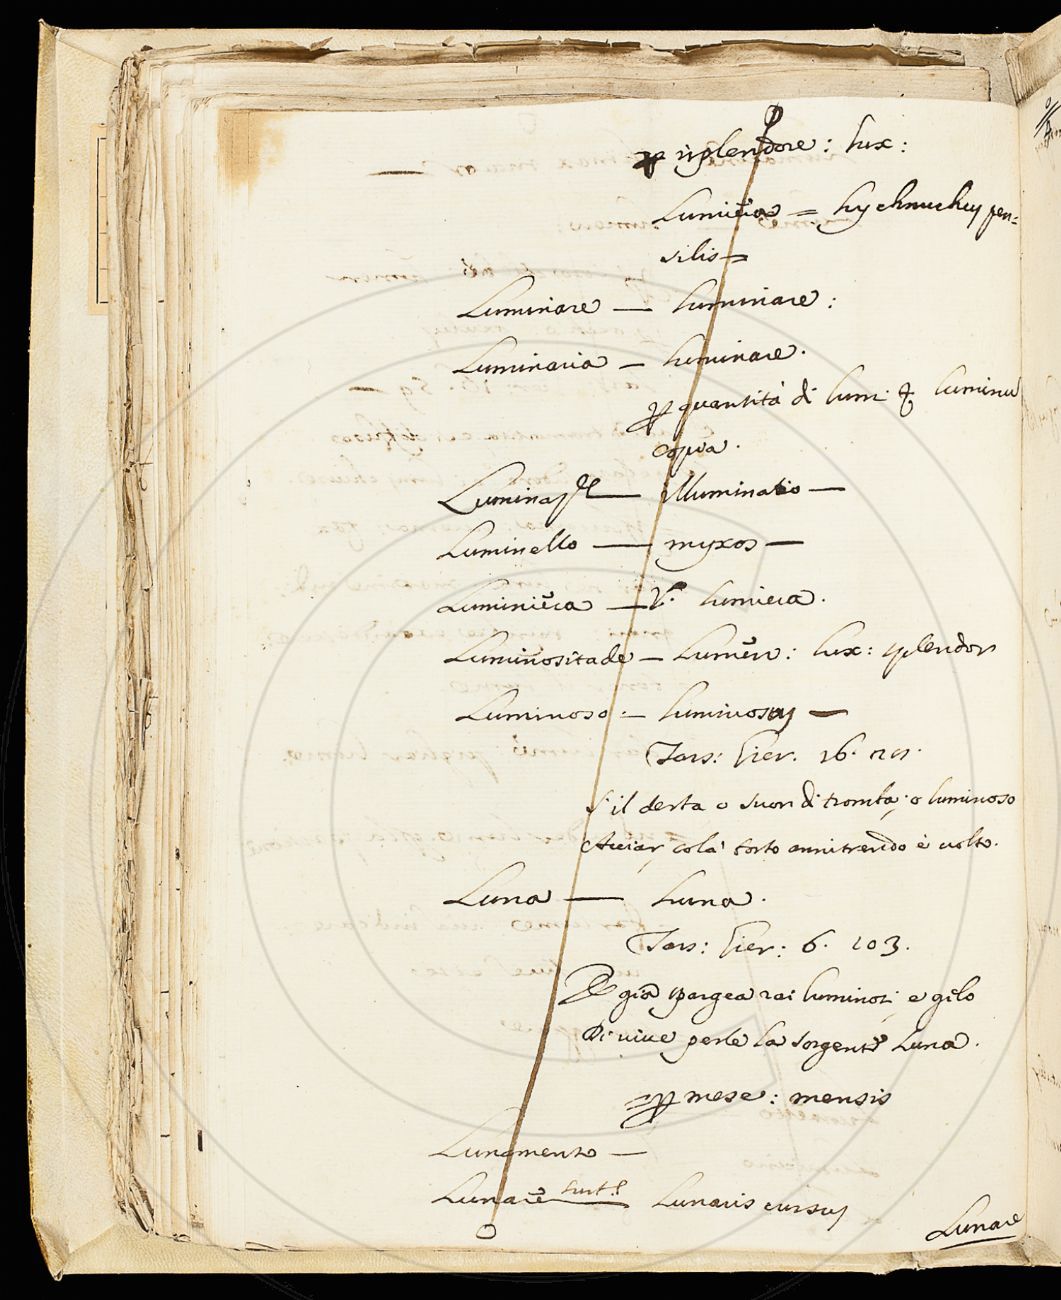 splendore: lux:
Lumiera = Lychnuchus pen-
silis =
Luminare — luminare:
Luminaria — luminare.
p quantità di lumi luminu
copia.
Luminaz.e — illuminatio —
Luminello — myxos —
Luminiera — V. lumiera.
Luminositade — Lumen: lux: splendor
Luminoso — luminosus —
Tass: Gier. 16.
S'il desta o suon di tromba, o luminoso
Acciar, colà tosto annitrendo è volto.
Luna — Luna.
Tass: Gier: 6. 103.
E già spargea rai luminosi, e gelo
Di vive perle la sorgente Luna.
p mese: mensis
Lunamento —
Lunare sust.e Lunaris cursus
Lunare